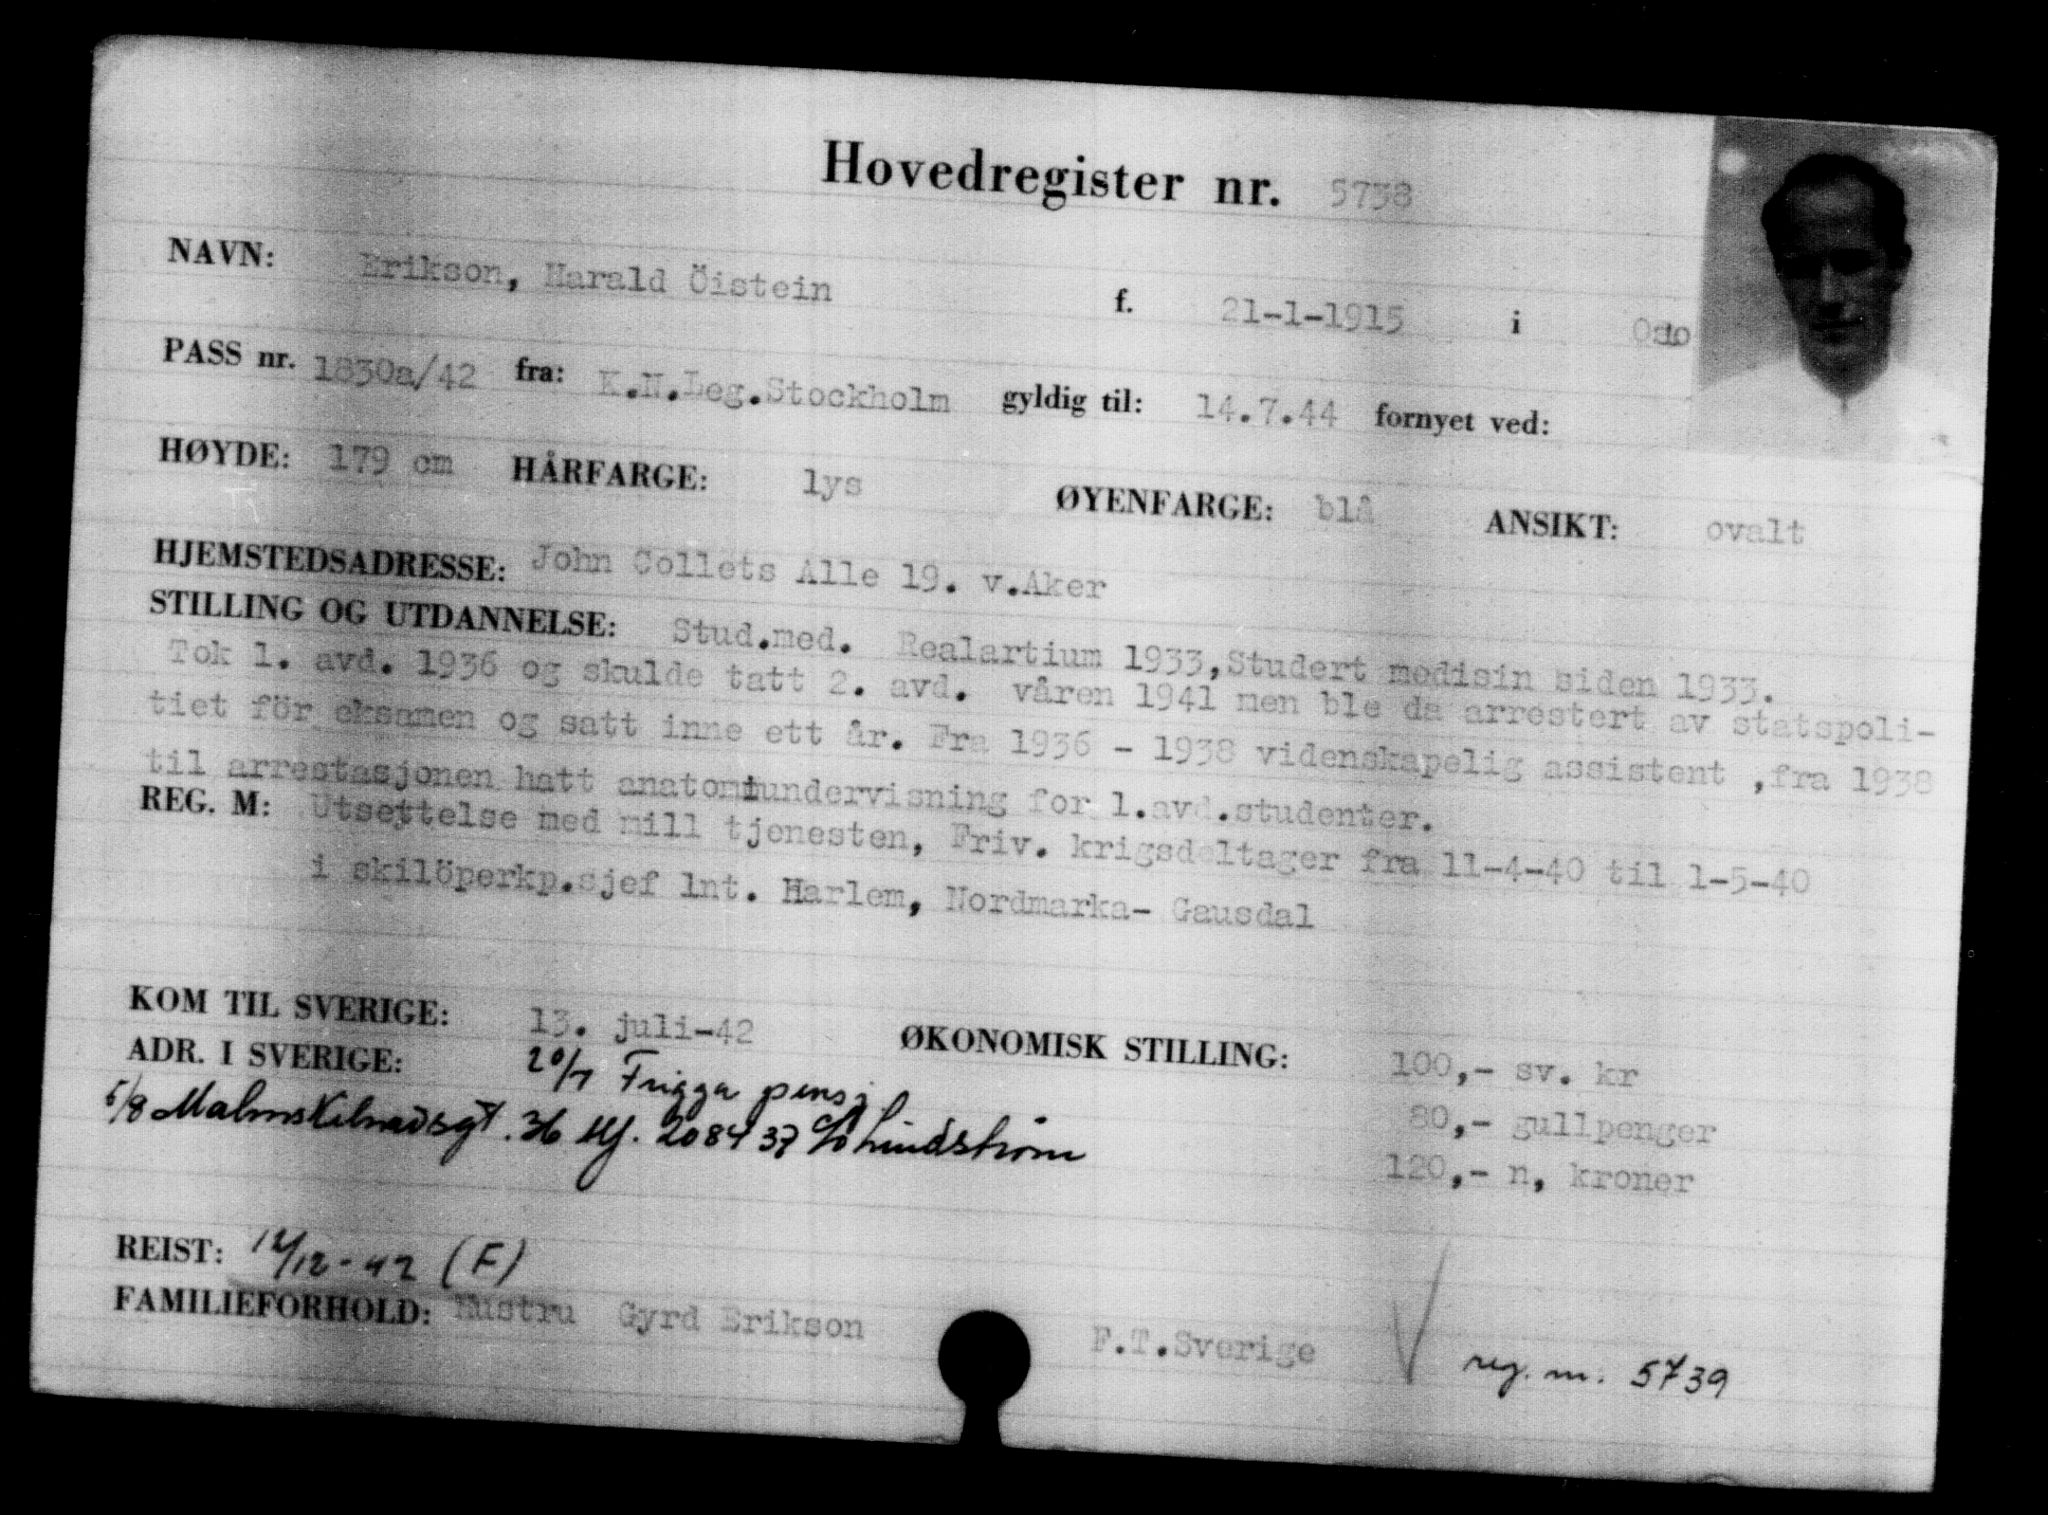 Hovedregister nr. 5738
NAVN: Erikson, Harald Öistein f. 21-1-1915 i Oslo
PASS nr. 1830a/42 fra: K.N.Leg.Stockholm gyldig til: 14.7.44 fornyet ved:
HØYDE: 179 cm HÅRFARGE: lys ØYENFARGE: blå ANSIKT: ovalt
HJEMSTEDSADRESSE: John Collets Alle 19. v.Aker
STILLING OG UTDANNELSE: Stud.med. Realartium 1933, Studert medisin siden 1933.
Tok 1. avd. 1936 og skulde tatt 2. avd. våren 1941 men ble da arrestert av statspoli-
tiet för eksamen og satt inne ett år. Fra 1936 - 1938 videnskapelig assistent ,fra 1938
til arrestasjonen hatt anatomiundervisning for 1.avd.studenter.
REG. M: Utsettelse med mill tjenesten, Friv. krigsdeltager fra 11-4-40 til 1-5-40
i skilöperkp.sjef lnt. Harlem, Nordmarka- Gausdal
KOM TIL SVERIGE: 13. juli-42 ØKONOMISK STILLING: 100,- sv. kr
ADR. I SVERIGE: 20/7 Frigga pensj
80,- gullpenger
5/8 Malmskilnadsgt. 36 2084 37 c/o Lindström
120,- n, kroner
REIST: 12/12-42 (F)
FAMILIEFORHOLD: Hustru Gyrd Erikson F.T.Sverige reg. m. 5739